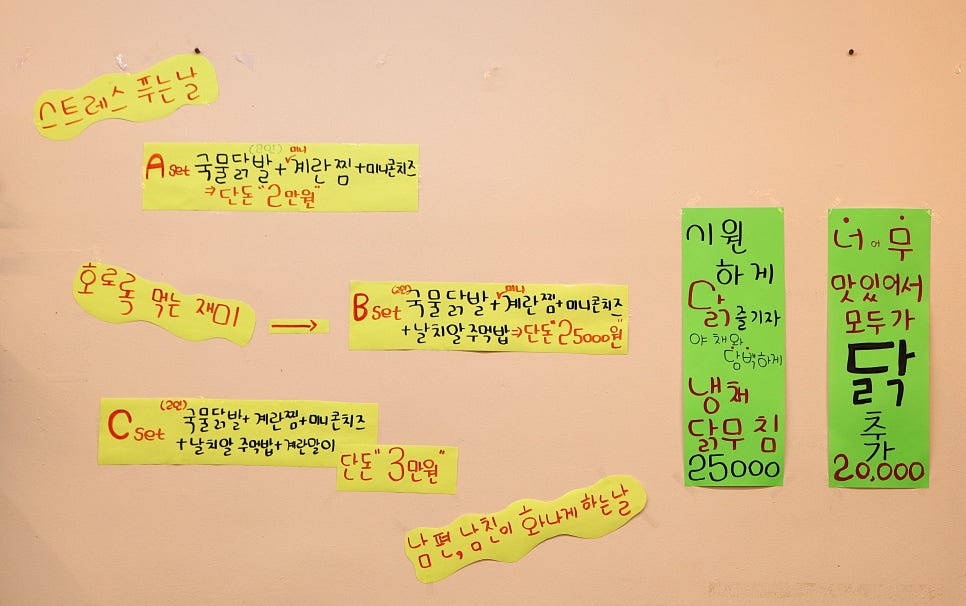 스트레스 푸는날
(2인) 미니
A set 국물닭발+계란찜+미니콘치즈
⇒단돈"2만원"
호로록 먹는 재미
→
(2인) 미니
B set 국물닭발+계란찜+미니콘치즈
+날치알주먹밥⇒단돈"25000원"
(2인)
C set 국물닭발+계란찜+미니콘치즈
+날치알 주먹밥+계란말이
단돈"3만원"
남편,남친이 화나게 하는날
시원
하게
닭즐기자
야채와
담백하게
냉채
닭무침
25000
너어무
맛있어서
모두가
닭
추
가
20,000